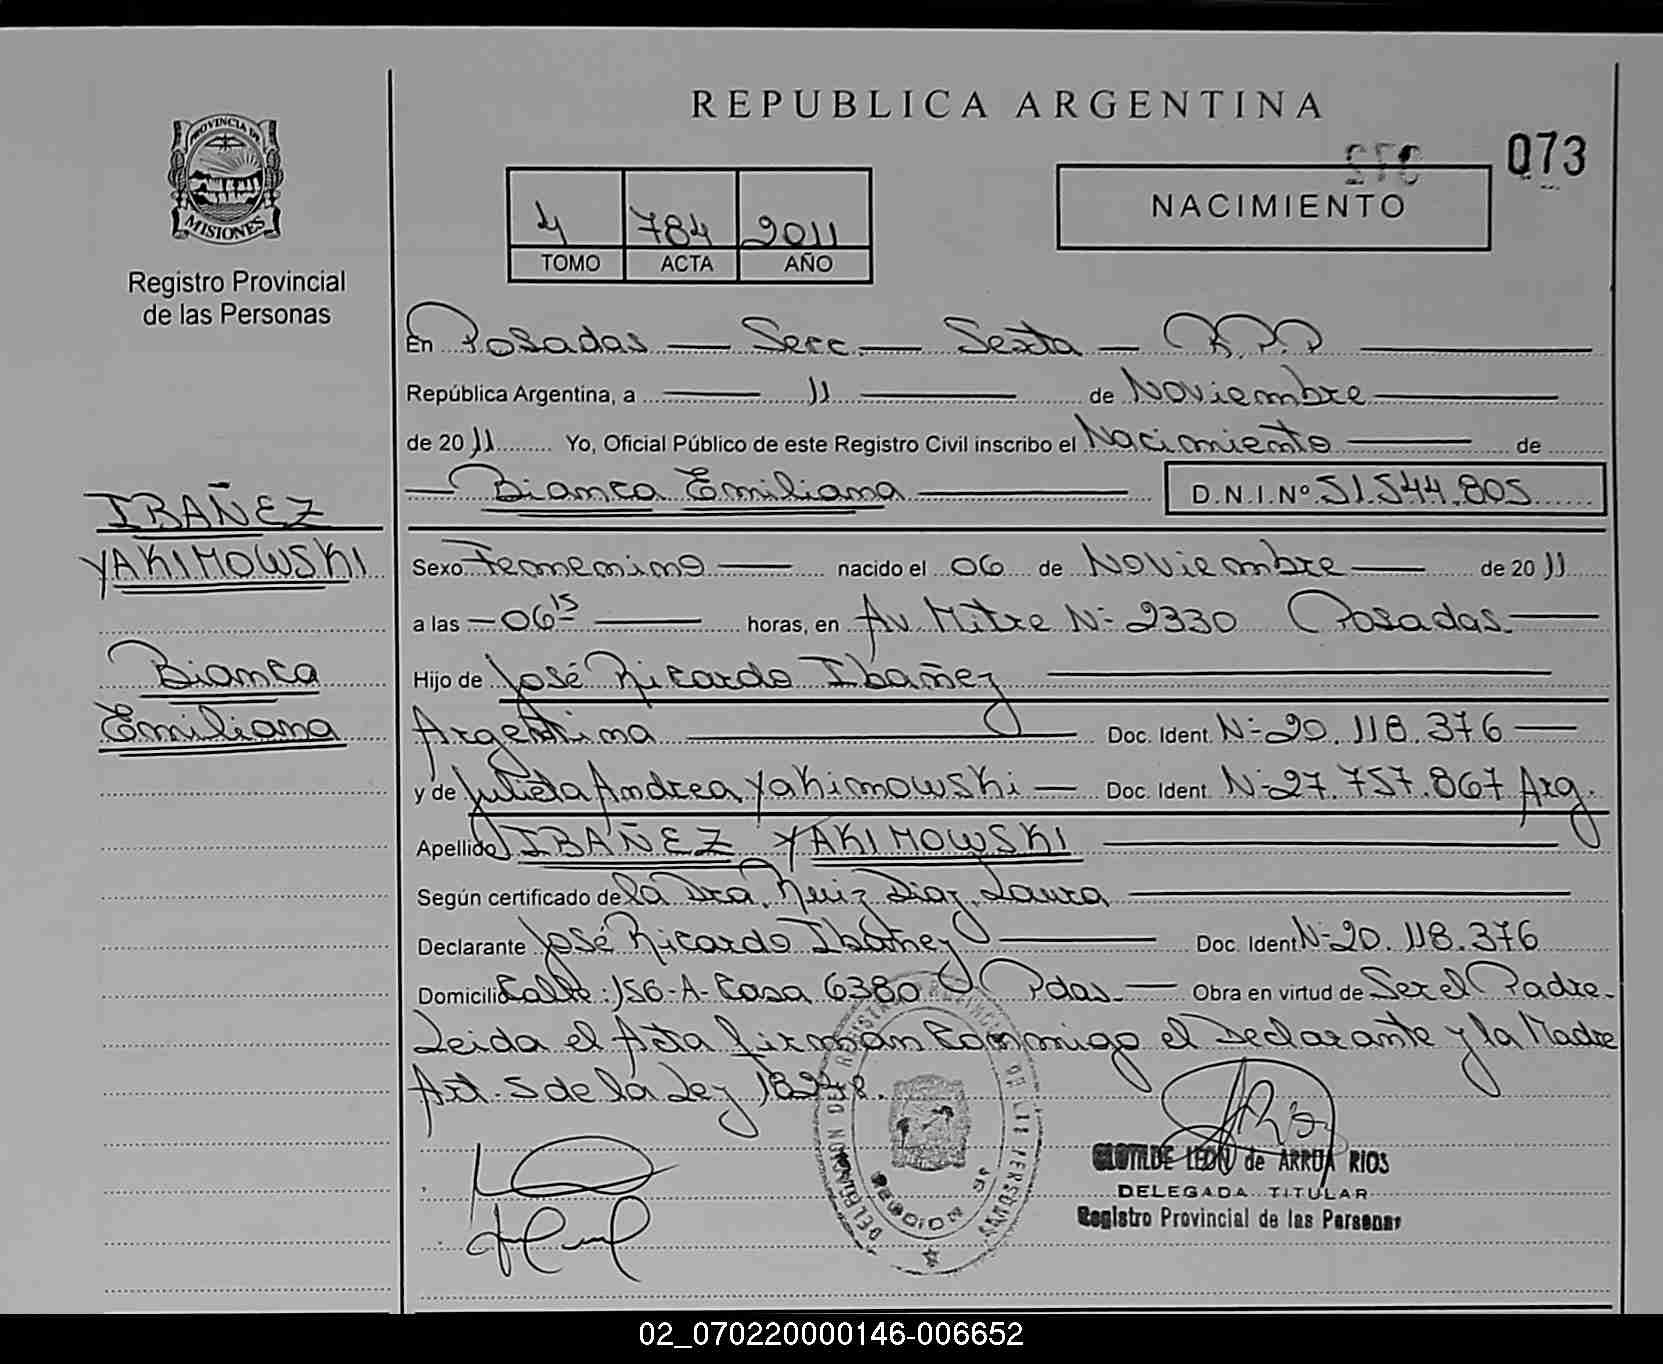 REPUBLICA ARGENTINA
073
NACIMIENTO
PROVINCIA DE
MISIONES
Registro Provincial
de las Personas
4 784 2011
TOMO ACTA AÑO
En Posadas — Secc. — Sexta — R.P.P
República Argentina, a 11 de Noviembre
de 2011 Yo, Oficial Público de este Registro Civil inscribo el Nacimiento de
Bianca Emiliana D.N.I.Nº 51.544.805
IBAÑEZ
YAKIMOWSKI
Bianca
Emiliana
Sexo Femenino nacido el 06 de Noviembre de 2011
a las 06 15 horas, en Av. Mitre Nº 2330 Posadas.
Hijo de José Ricardo Ibañez
Argentina Doc. Ident. Nº 20.118.376
y de Julieta Andrea Yakimowski Doc. Ident. Nº 27.757.867 Arg.
Apellido IBAÑEZ YAKIMOWSKI
Según certificado de la Dra. Ruiz Diaz, Laura
Declarante José Ricardo Ibañez Doc. Ident Nº 20.118.376
Domicilio Calle: 156-A- Casa 6380 Pdas. Obra en virtud de Ser el Padre.
Leida el Acta firman conmigo el Declarante y la Madre
Art. 5 de la Ley 18248.
CLOTILDE LEON de ARRUA RIOS
DELEGADA TITULAR
Registro Provincial de las Personas
02_070220000146-006652